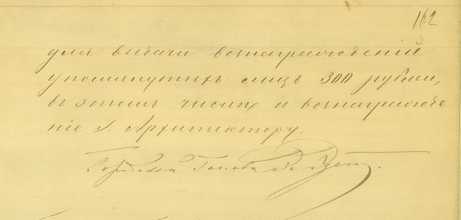 162
для выдачи вознаграждений
упомянутыхъ лицъ 300 рублей,
въ этомъ числѣ и вознагражде
ніе г. Архитектору.
Городской Голова